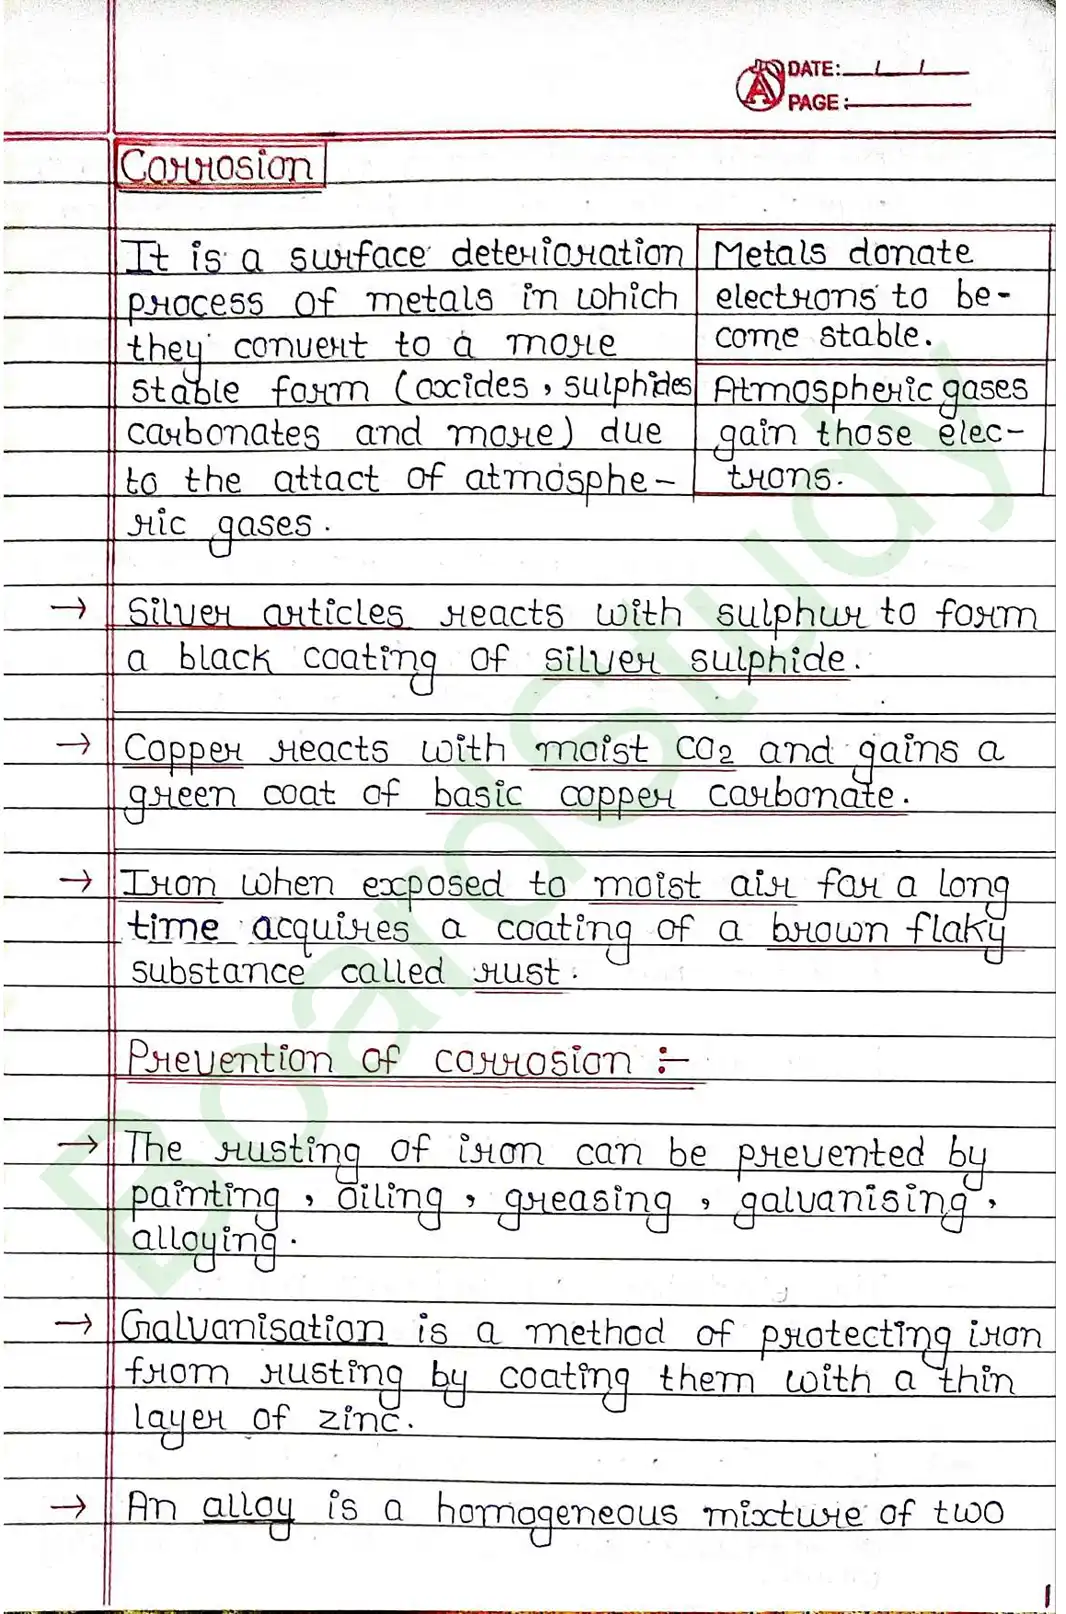 DATE: / /
PAGE:
Corrosion
It is a surface deterioration
process of metals in which
they convert to a more
stable form (oxides, sulphides
carbonates and more) due
to the attact of atmosphe-
ric gases.
Metals donate
electrons to be-
come stable.
Atmospheric gases
gain those elec-
trons.
→ Silver articles reacts with sulphur to form
a black coating of silver sulphide.
→ Copper reacts with moist CO2 and gains a
green coat of basic copper carbonate.
→ Iron when exposed to moist air for a long
time acquires a coating of a brown flaky
substance called rust.
Prevention of corrosion :-
→ The rusting of iron can be prevented by
painting, oiling, greasing, galvanising,
alloying.
→ Galvanisation is a method of protecting iron
from rusting by coating them with a thin
layer of zinc.
→ An alloy is a homogeneous mixture of two
1
BoardStudy